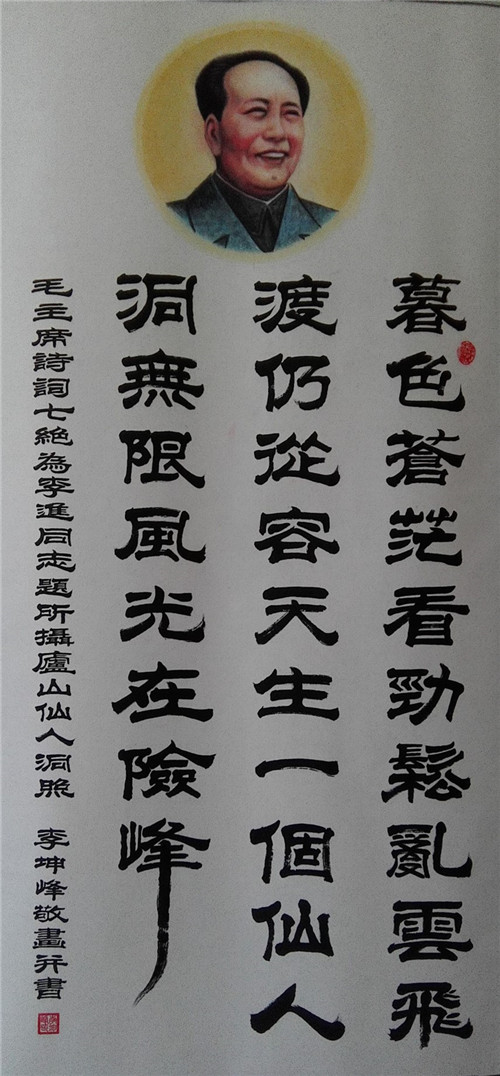 暮色蒼茫看勁鬆亂雲飛
渡仍從容天生一個仙人
洞無限風光在險峰
毛主席詩詞七絕為李進同志題所攝廬山仙人洞照
李坤峰敬畫并書